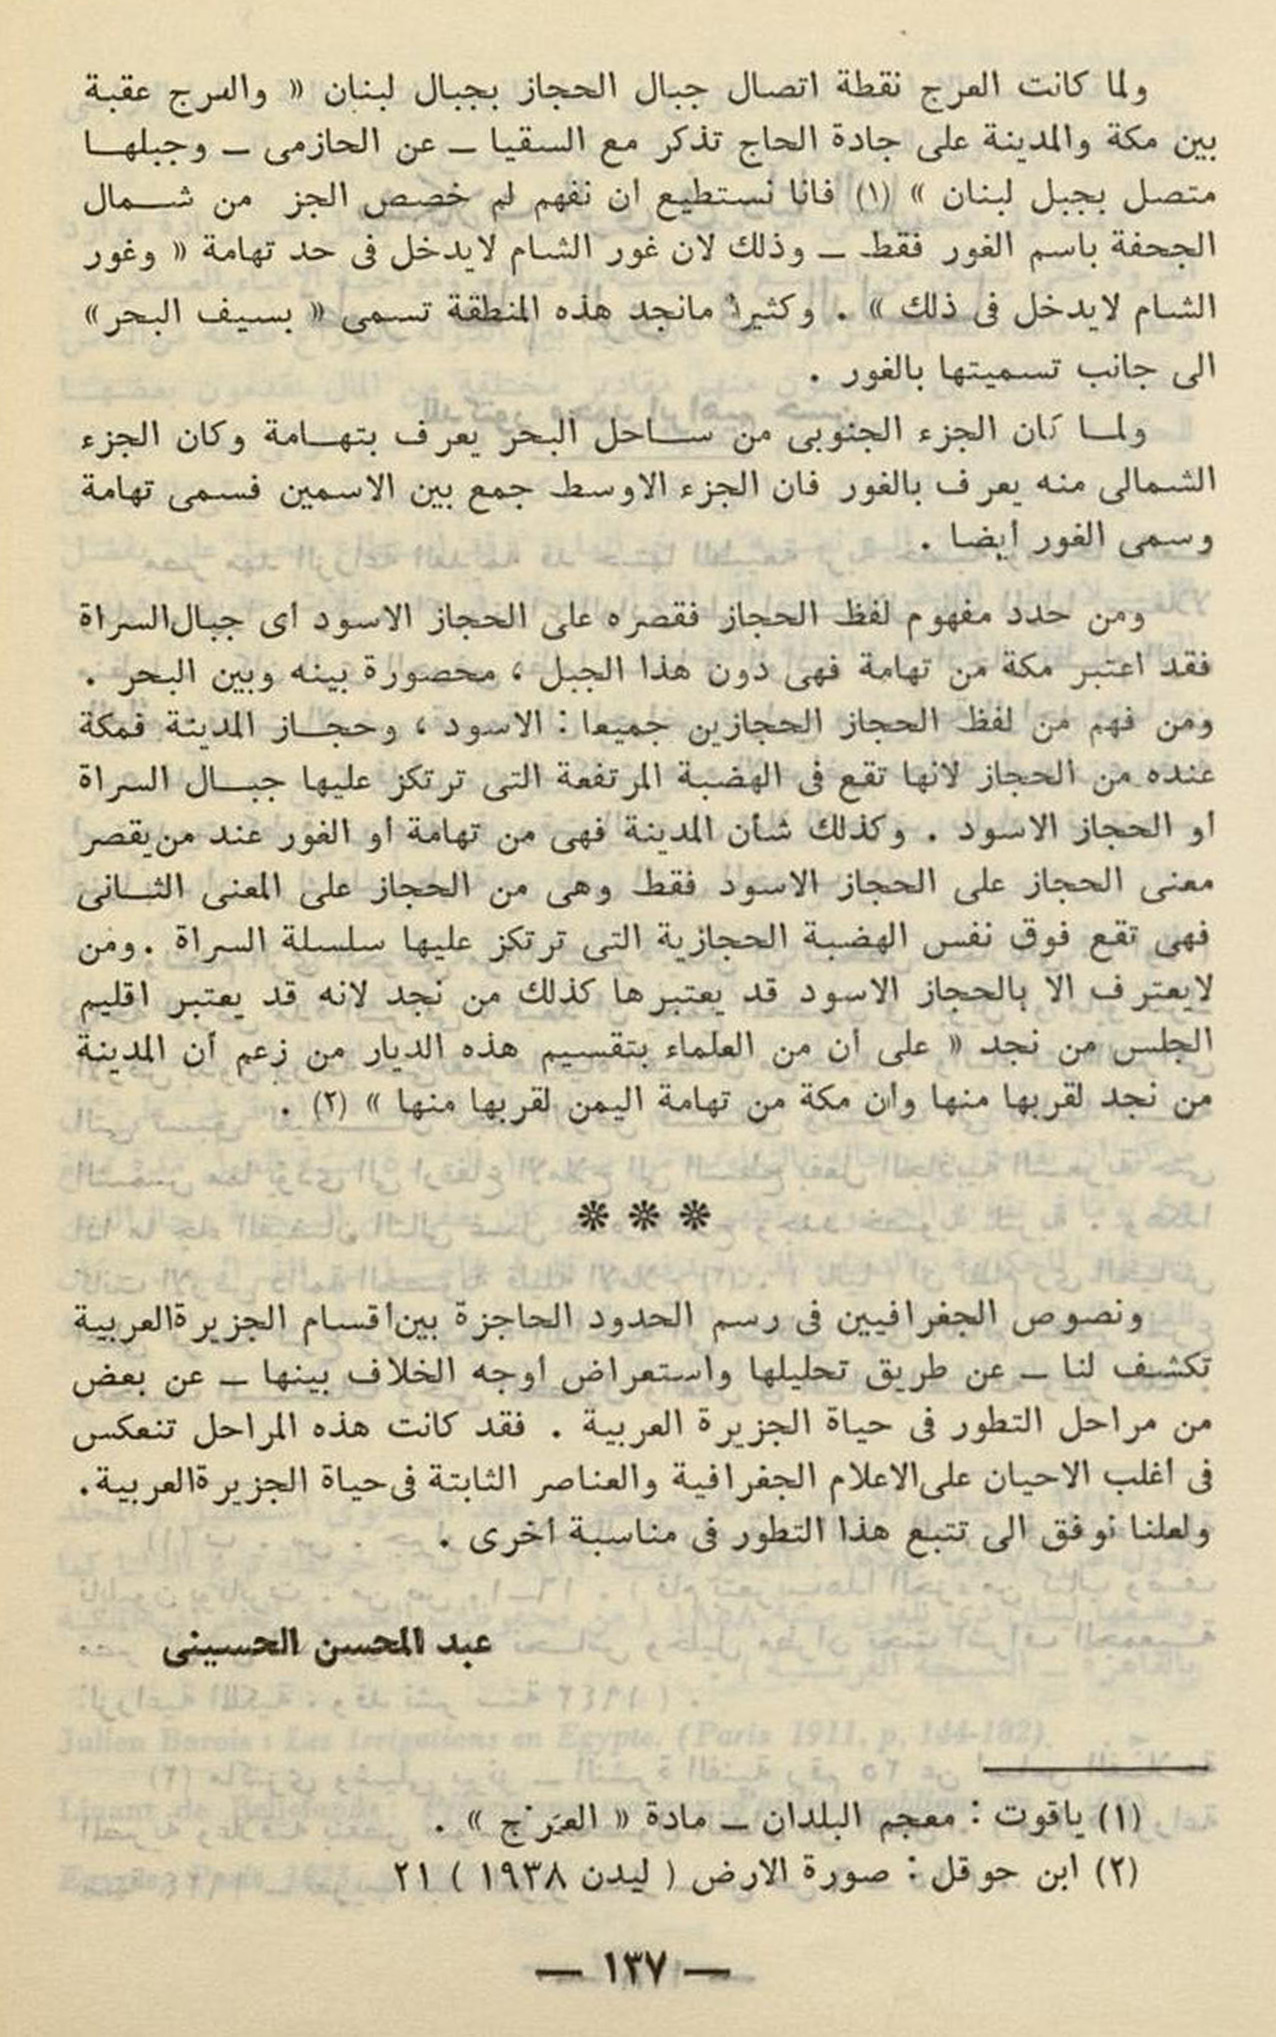 ولما كانت العرج نقطة اتصال جبال الحجاز بجبال لبنان « والعرج عقبة
بين مكة والمدينة على جادة الحاج تذكر مع السقيا ــ عن الحازمى ــ وجبلهـا
متصل بجبل لبنان » (١) فانا نستطيع ان نفهم لم خصص الجز من شـمال
الجحفة باسم الغور فقط ــ وذلك لان غور الشام لايدخل فى حد تهامة « وغور
الشام لايدخل فى ذلك » . وكثيرا مانجد هذه المنطقة تسمى « بسيف البحر»
الى جانب تسميتها بالغور .
ولمـا كان الجزء الجنوبى من سـاحل البحر يعرف بتهـامة وكان الجزء
الشمالى منه يعرف بالغور فان الجزء الاوسط جمع بين الاسمين فسمى تهامة
وسمى الغور أيضا .
ومن حدد مفهوم لفظ الحجاز فقصره على الحجاز الاسود أى جبال السراة
فقد اعتبر مكة من تهامة فهى دون هذا الجبل ، محصورة بينه وبين البحر .
ومن فهم من لفظ الحجاز الحجازين جميعا : الاسود ، وحجـاز المدينة فمكة
عنده من الحجاز لانها تقع فى الهضبة المرتفعة التى ترتكز عليها جبـال السراة
أو الحجاز الاسود . وكذلك شأن المدينة فهى من تهامة أو الغور عند من يقصر
معنى الحجاز على الحجاز الاسود فقط وهى من الحجاز على المعنى الثـانى
فهى تقع فوق نفس الهضبة الحجازية التى ترتكز عليها سلسلة السراة . ومن
لايعترف الا بالحجاز الاسود قد يعتبرها كذلك من نجد لانه قد يعتبر اقليم
الجلس من نجد « على أن من العلماء بتقسيم هذه الديار من زعم أن المدينة
من نجد لقربها منها وان مكة من تهامة اليمن لقربها منها » (٢) .
❊ ❊ ❊
ونصوص الجغرافيين فى رسم الحدود الحاجزة بين أقسام الجزيرة العربية
تكشف لنا ــ عن طريق تحليلها واستعراض أوجه الخلاف بينها ــ عن بعض
من مراحل التطور فى حياة الجزيرة العربية . فقد كانت هذه المراحل تنعكس
فى أغلب الاحيان على الاعلام الجغرافية والعناصر الثابتة فى حياة الجزيرة العربية.
ولعلنا نوفق الى تتبع هذا التطور فى مناسبة أخرى .
عبد المحسن الحسينى
(١) ياقوت : معجم البلدان ــ مادة « العَرْج » .
(٢) ابن حوقل : صورة الارض ( ليدن ١٩٣٨ ) ٢١
— ١٣٧ —